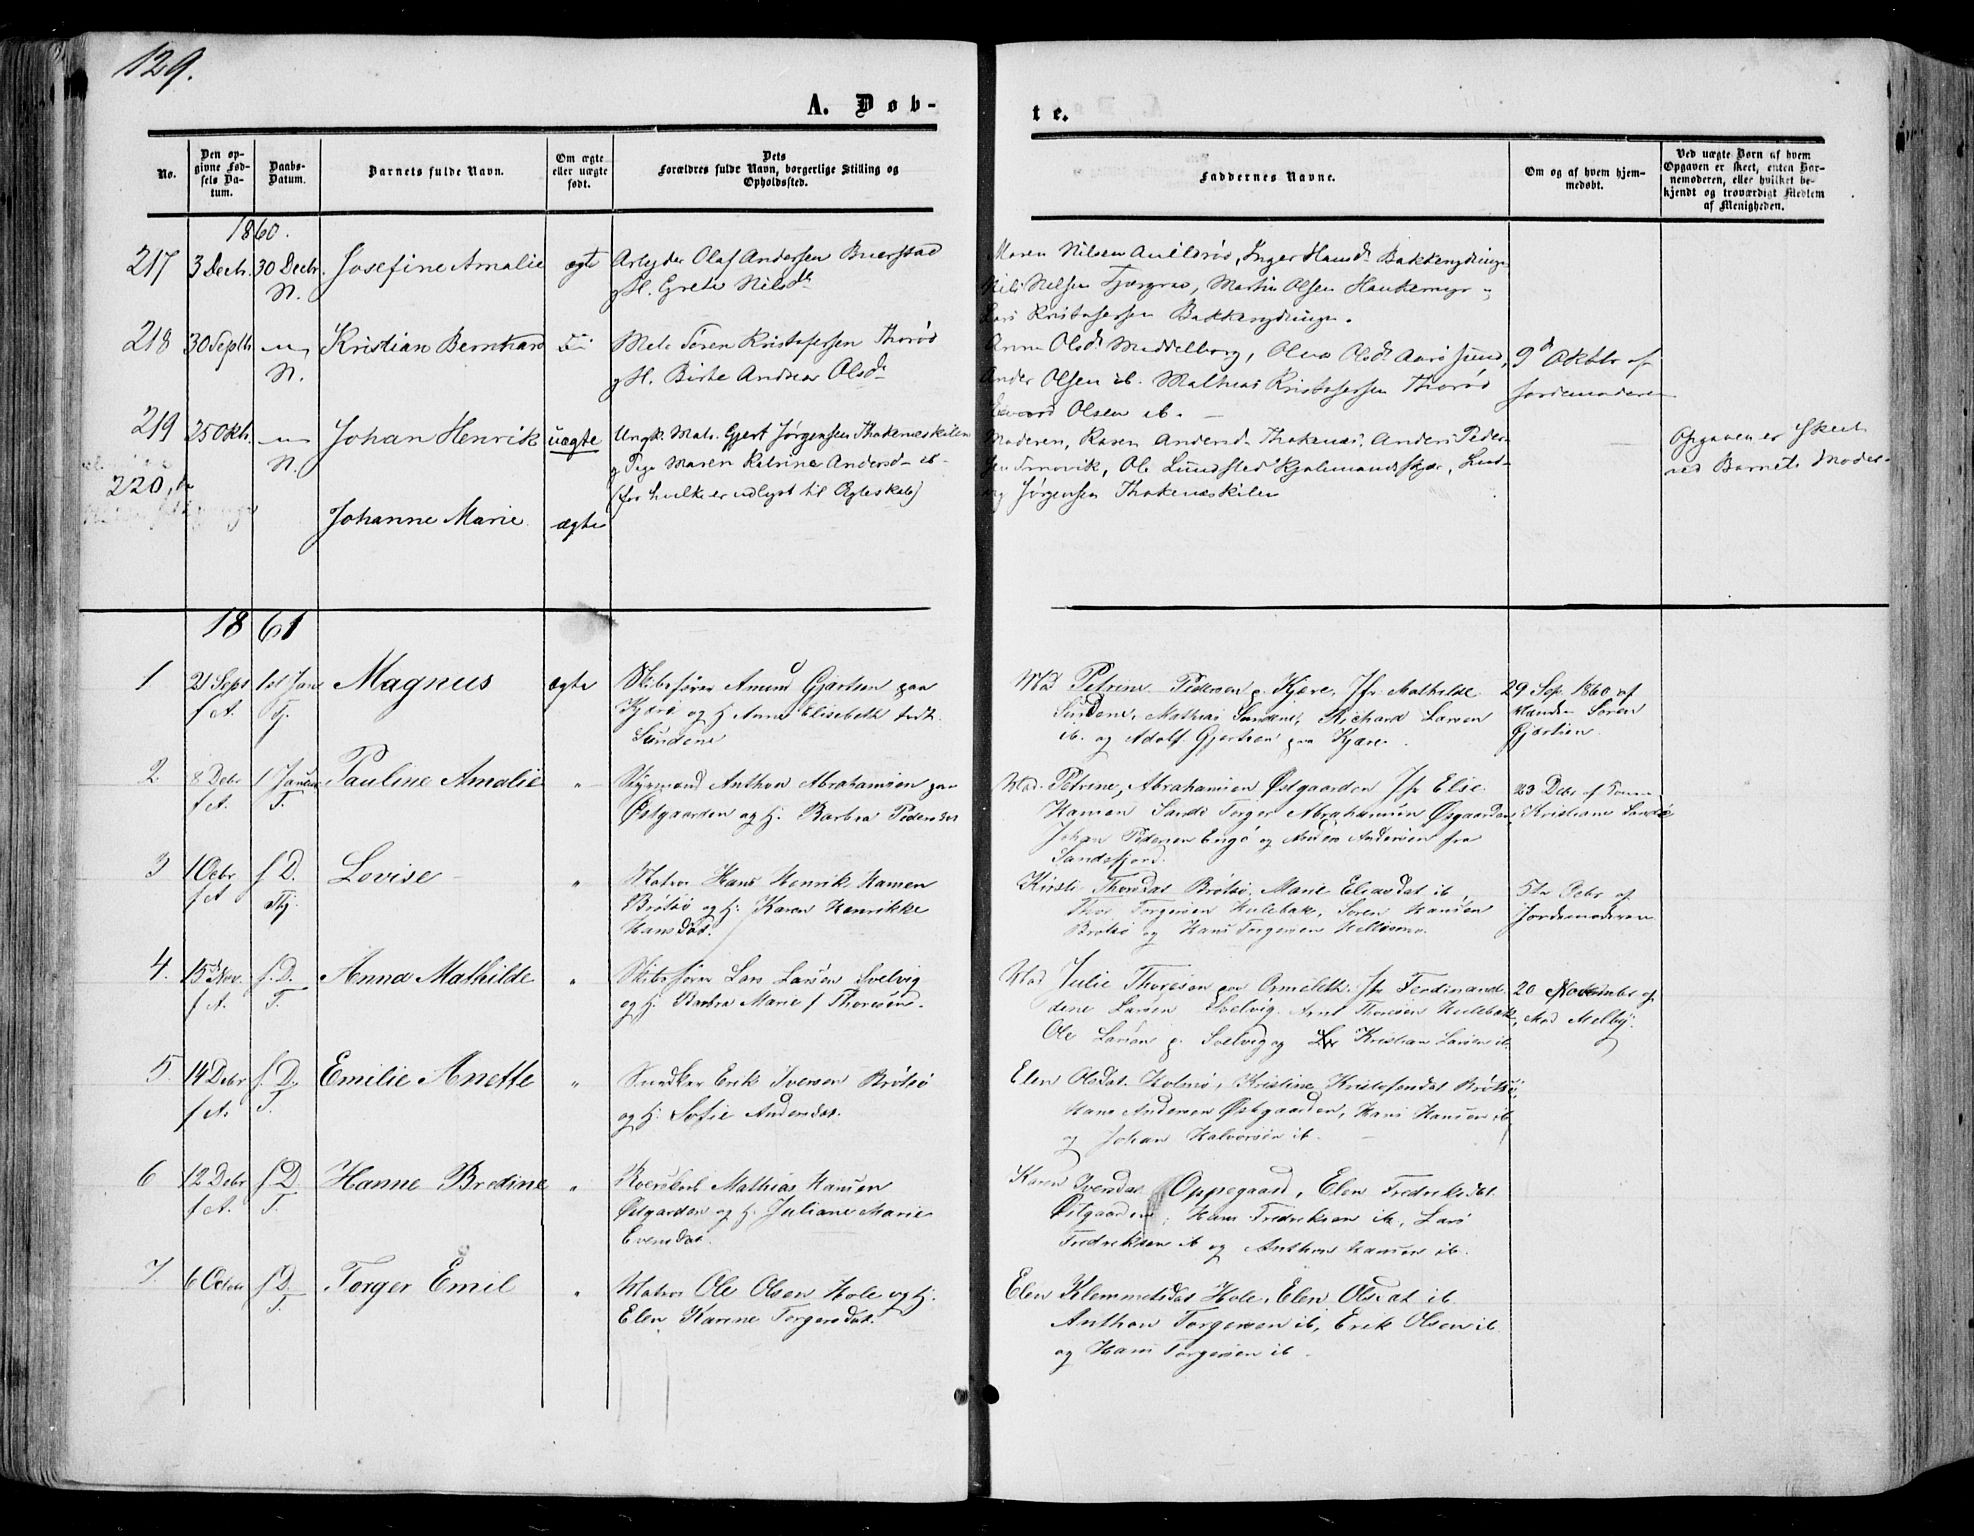 129.
A. Døb-
te.
No.
Den op-
givne Fød-
sels Da-
tum.
Daabs-
Datum.
Barnets fulde Navn.
Om ægte
eller uægte
født.
Dets
Forældres fulde Navn, borgerlige Stilling og
Opholdssted.
Faddernes Navne.
Om og af hvem hjem-
medøbt.
Ved uægte Børn af hvem
Opgaven er skeet, enten Bar-
nemoderen, eller hvilket be-
kjendt og troværdigt Medlem
af Menigheden.
1860.
217 3 Decb. 30 Decbr. Josefine Amalie ægte Arbejder Olaf Andersen
N. g H. Grete Nilsdr
Maren Nilsen Inger Hansdr
Nelsen Martin Olsen
Lars Kristofersen
218 30 Septb. Kristian Bernhard Mats Søren Kristofersen Thorød
N. g H. Birte Andrea Olsdr
Anne Olsdr Middelborg, Olava Olsdr Aarøsund,
Anders Olsen ib. Mathias Kristofersen Thorød
Edvard Olsen ib.
9d Oktbr af
Jordemoderen
219 25 Okt. Johan Henrik uægte Ungk. Matr. Gjert Jørgensen Thokenæskilen
N. g Pige Maren Katrine Andersd ib.
(for hvilke er udlyst til Ægteskab)
Moderen, Andersd Thokenæs, Anders Peder-
sen Ole Lundsted
Jørgensen Thokenæskilen
Opgaven er skeet
ved Barnets Moder
220
Johanne Marie ægte
1861
1 21 Sept 1ste Jan Magnus ægte Skibsfører Amund Gjertsen paa
f A. Tj. Kjærø og H. Anne Elisabeth født
Sundene
Mad Petrine Pedersen p. Kjære, Jfr Mathilde
Sundene, Mathias Sundene, Richard Larsen
ib. og Adolf Gjertsen paa Kjære.
29 Sep. 1860 af
Søren
Gjertsen.
2. 8 Debr 1 Januar Pauline Amalie " Styrmand Anthon Abrahamsen paa
f A. T. Østgaarden og H. Barbra Pedersen
Mad. Petrine Abrahamsen Østgaarden Jfr Elise
Hansen Sande Torger Abrahamsen Øsgaarden
Johan Pedersen Engø og Anders Andersen fra
Sandefjord.
23 Debr af
Kristiane
3 1 Ocbr f. D. Lovise " Matros Hans Henrik Hansen
f A Tj. Brøtsø og H. Karen Henrikke
Hansdat.
Kirsti Thorsdat Brøtsø, Marie Eliasdat ib.
Thor Torgersen Hulebak, Søren Hansen
Brøtsø og Hans Torgersen
5te Debr af
Jordemoderen
4. 15d Nov. f. D. Anna Mathilde " Skibsfører Lars Larsen Svelvig
f A. T. og H. Barbra Marie f Thoresen.
Mad Julie Thoresen paa Ormelett. Jfr Ferdinan-
dene Larsen Svelvig. Thoresen Hulebak,
Ole Larsen p. Svelvig og Kristian Larsen ib.
20 November af
Mad Melby.
5. 14 Debr f. D. Emilie Anette " Snedker Erik Iversen Brøtsø
f A. T. og H. Sofie Andersdat.
Elen Olsdat Holmø, Kristine Kristofersdat Brøtsø,
Hans Andersen Østgaarden, Hans Hansen ib
og Johan Halvorsen ib.
6 12 Debr f D Hanne Bredine " Mathias Hansen
f A. T. Østgarden og H. Juliane Marie
Evensdat.
Karen Iversdat Oppegaard, Elen Fredriksdat
Østgaarden, Hans Fredriksen ib, Lars
Fredriksen ib og Anthon Hansen ib.
7. 6 October f D. Torger Emil " Matros Ole Olsen Hole og H.
T. Elen Karine Torgersdat.
Elen Klemmetsdat Hole, Elen Olsdat ib
Anthon Torgersen ib, Erik Olsen ib
og Hans Torgersen ib.